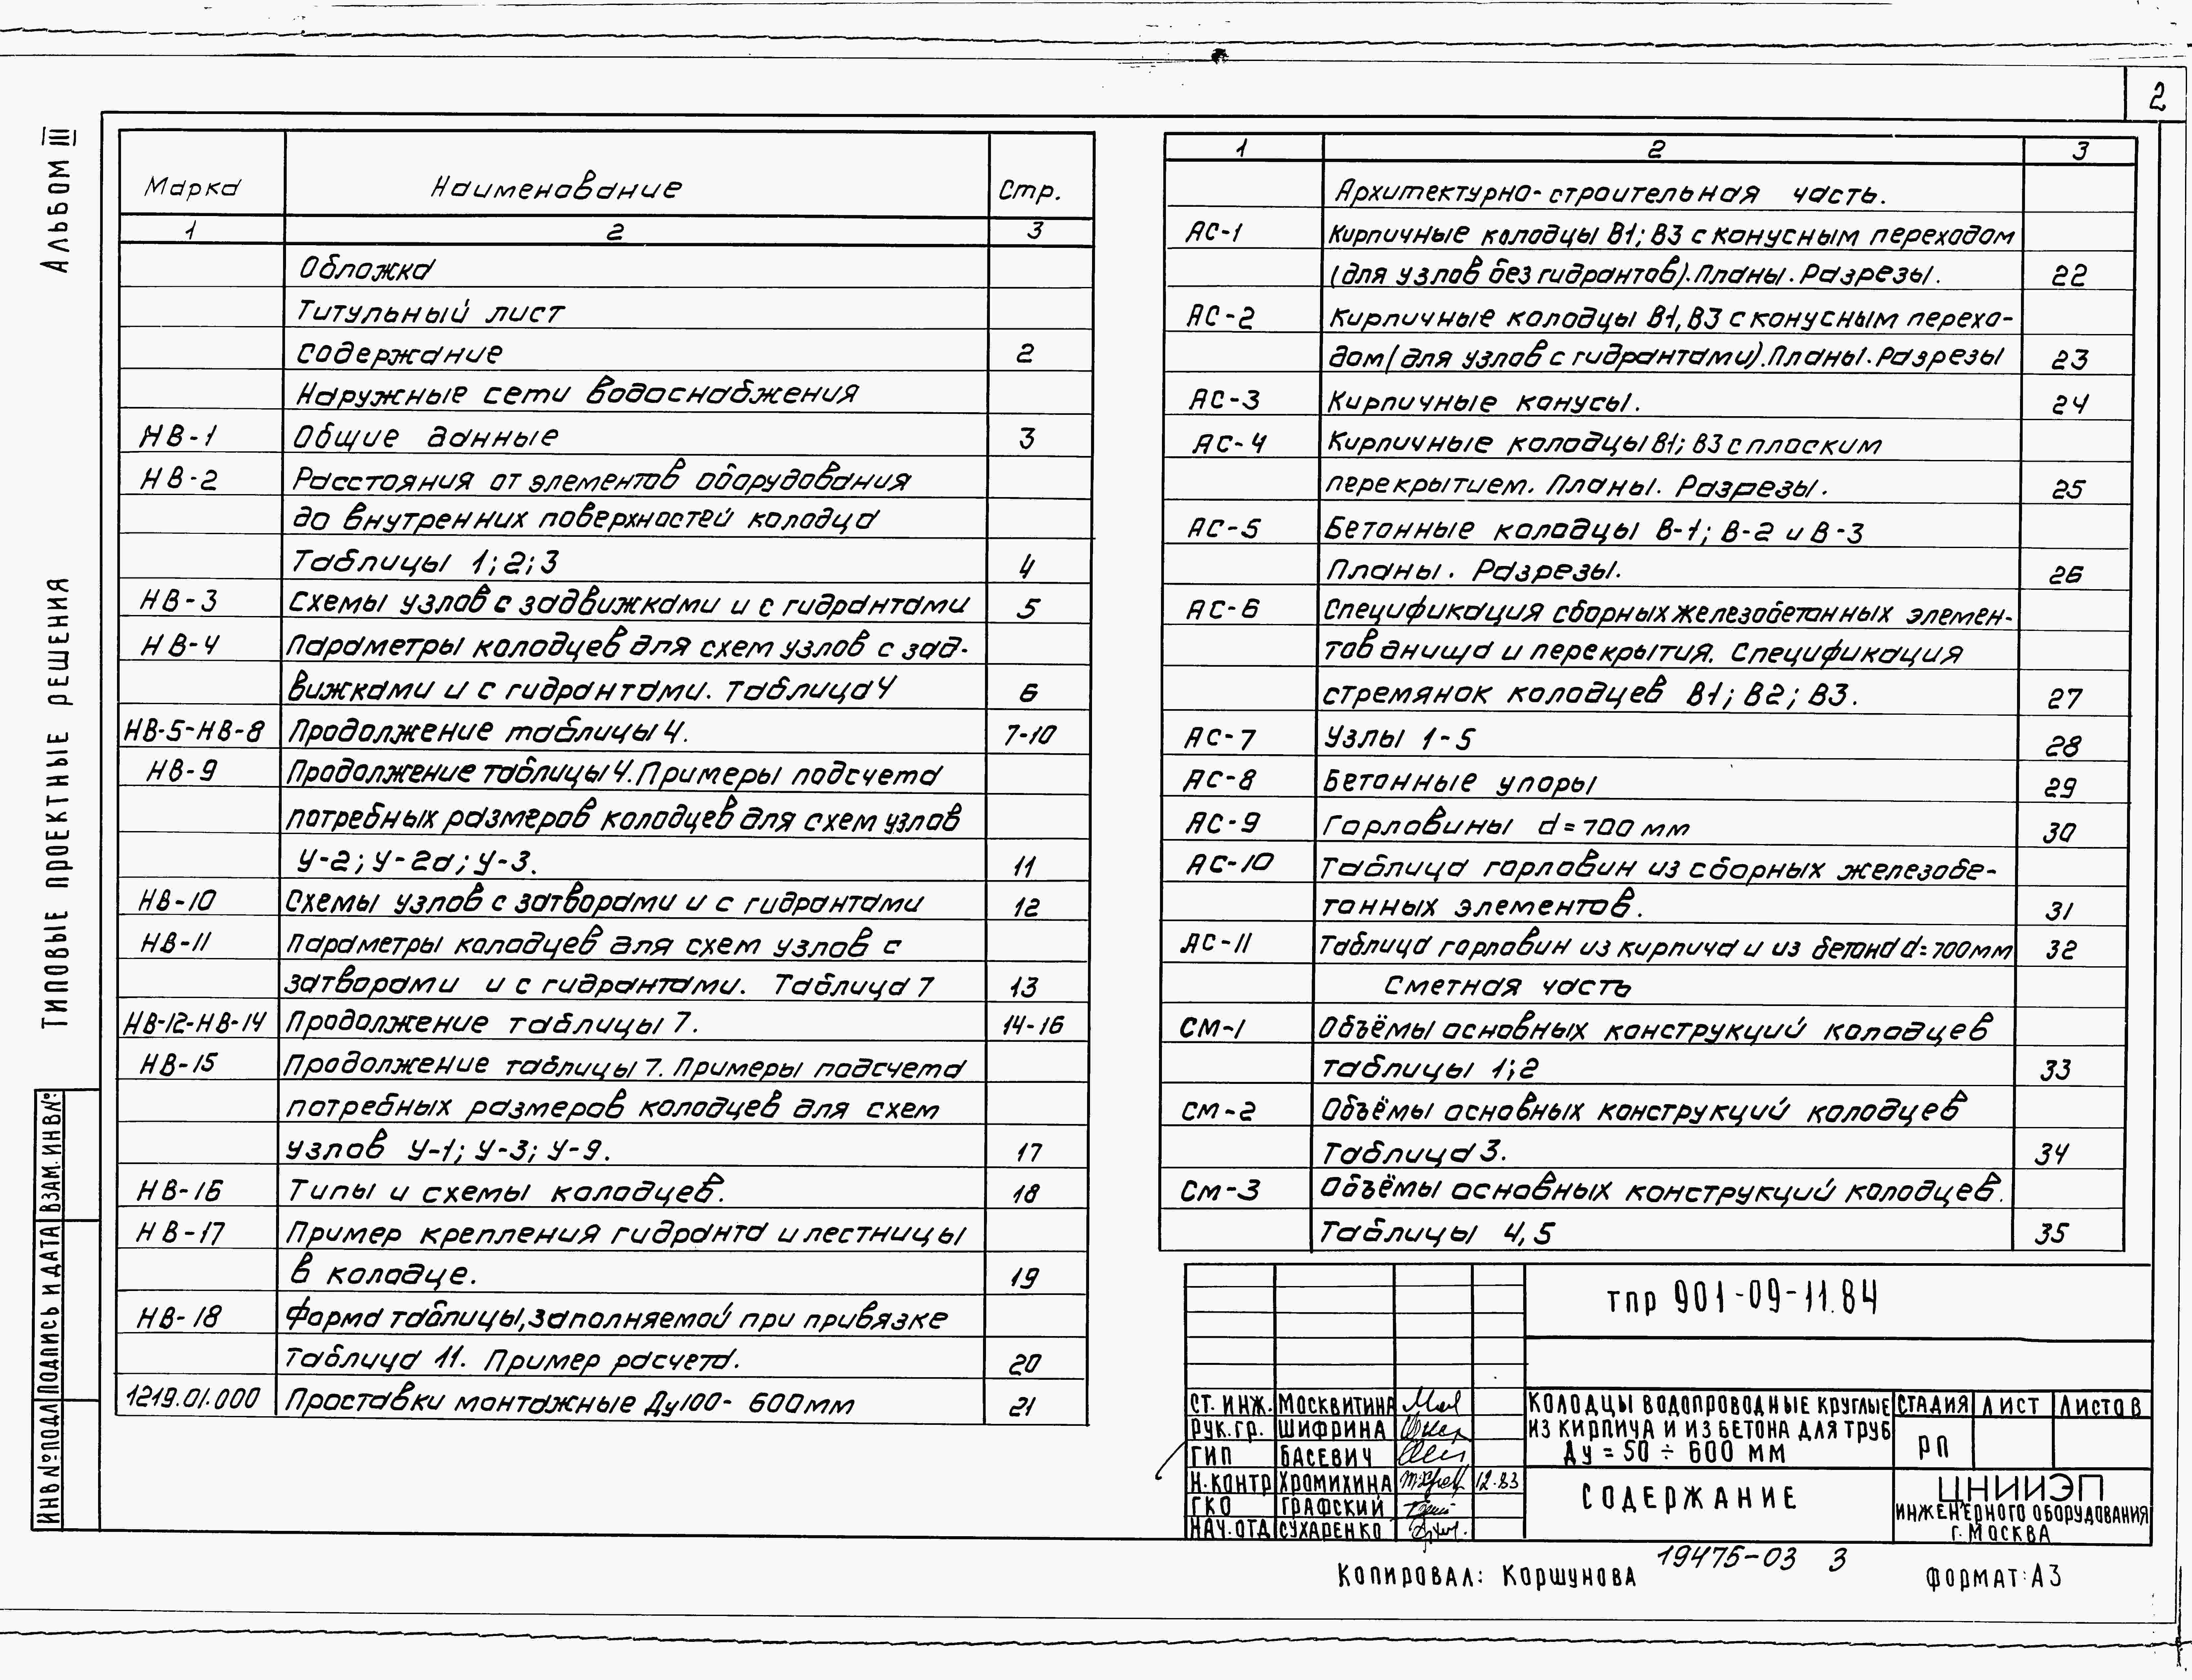 2
АЛЬБОМ III
ТИПОВЫЕ ПРОЕКТНЫЕ РЕШЕНИЯ
ВЗАМ. ИНВ№
ПОДПИСЬ И ДАТА
ИНВ № ПОДЛ
Марка Наименование Стр.
1 2 3
Обложка
Титульный лист
содержание 2
Наружные сети водоснабжения
НВ-1 Общие данные 3
НВ-2 Расстояния от элементов оборудования
до внутренних поверхностей колодца
Таблицы 1; 2; 3 4
НВ-3 Схемы узлов с задвижками и с гидрантами 5
НВ-4 Параметры колодцев для схем узлов с зад-
вижками и с гидрантами. Таблица 4 6
НВ-5-НВ-8 Продолжение таблицы 4. 7-10
НВ-9 Продолжение таблицы 4. Примеры подсчета
потребных размеров колодцев для схем узлов
У-2; У-2а; У-3. 11
НВ-10 Схемы узлов с затворами и с гидрантами 12
НВ-11 Параметры колодцев для схем узлов с
затворами и с гидрантами. Таблица 7 13
НВ-12-НВ-14 Продолжение таблицы 7. 14-16
НВ-15 Продолжение таблицы 7. Примеры подсчета
потребных размеров колодцев для схем
узлов У-1; У-3; У-9. 17
НВ-16 Типы и схемы колодцев. 18
НВ-17 Пример крепления гидранта и лестницы
в колодце. 19
НВ-18 Форма таблицы, заполняемой при привязке
Таблица 11. Пример расчета. 20
1219.01.000 Проставки монтажные Ду100- 600мм 21
1 2 3
Архитектурно-строительная часть.
АС-1 Кирпичные колодцы В1; В3 с конусным переходом
(для узлов без гидрантов). Планы. Разрезы. 22
АС-2 Кирпичные колодцы В1, В3 с конусным перехо-
дом (для узлов с гидрантами). Планы. Разрезы 23
АС-3 Кирпичные конусы. 24
АС-4 Кирпичные колодцы В1; В3 с плоским
перекрытием. Планы. Разрезы. 25
АС-5 Бетонные колодцы В-1; В-2 и В-3
Планы. Разрезы. 26
АС-6 Спецификация сборных железобетонных элемен-
тов днища и перекрытия. Спецификация
стремянок колодцев В1; В2; В3. 27
АС-7 Узлы 1-5 28
АС-8 Бетонные упоры 29
АС-9 Горловины d=700 мм 30
АС-10 Таблица горловин из сборных железобе-
тонных элементов. 31
АС-11 Таблица горловин из кирпича и из бетона d=700мм 32
Сметная часть
СМ-1 Объёмы основных конструкций колодцев
таблицы 1; 2 33
СМ-2 Объёмы основных конструкций колодцев
Таблица 3. 34
СМ-3 Объёмы основных конструкций колодцев.
Таблицы 4, 5 35
тпр 901-09-11.84
СТ. ИНЖ. МОСКВИТИНА
РУК. ГР. ШИФРИНА
ГИП БАСЕВИЧ
Н.КОНТР ХРОМИХИНА 12.83
ГКО ГРАФСКИЙ
НАЧ.ОТД СУХАРЕНКО
КОЛОДЦЫ ВОДОПРОВОДНЫЕ КРУГЛЫЕ
ИЗ КИРПИЧА И ИЗ БЕТОНА ДЛЯ ТРУБ
Ду = 50 ÷ 600 ММ
СТАДИЯ ЛИСТ ЛИСТОВ
РП
СОДЕРЖАНИЕ
ЦНИИЭП
ИНЖЕНЕРНОГО ОБОРУДОВАНИЯ
Г. МОСКВА
КОПИРОВАЛ: КОРШУНОВА 19475-03 3 ФОРМАТ: А3